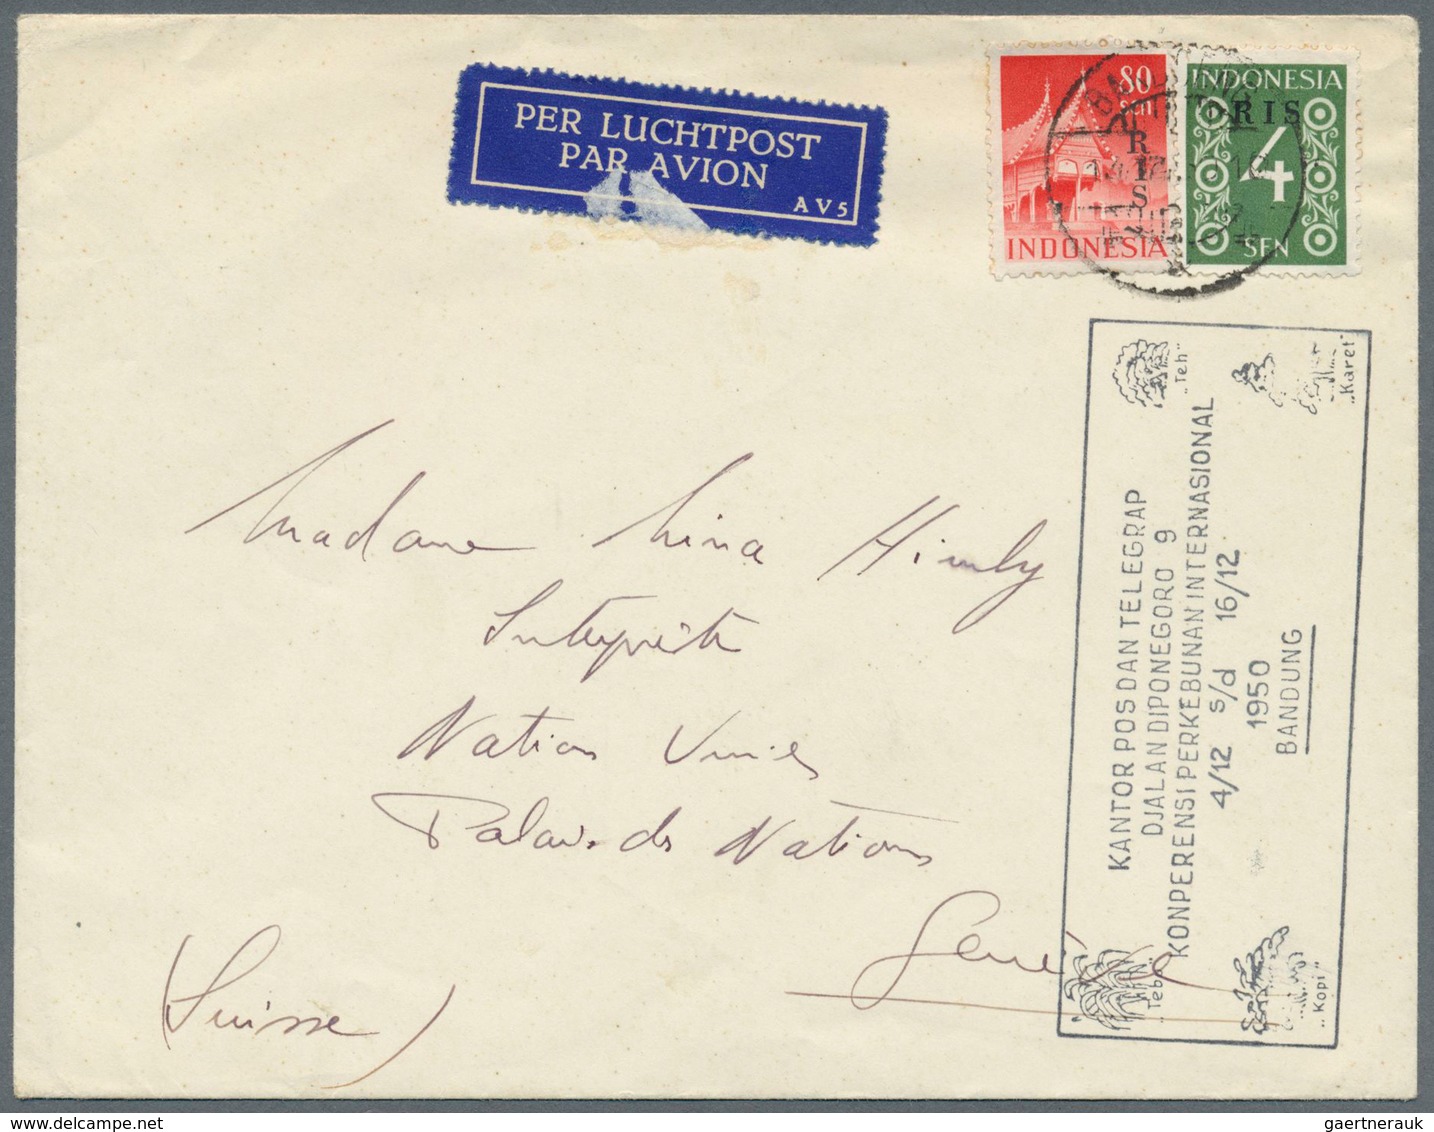 PER LUCHTPOST
PAR AVION
AV5
80
sen
RIS
INDONESIA
INDONESIA
RIS
4
SEN
Madame Nina Himly
Interprète
Nations Unies
Palais des Nations
Genève
(Suisse)
„Teh"
„Karet"
KANTOR POS DAN TELEGRAP
DJALAN DIPONEGORO 9
KONPERENSI PERKEBUNAN INTERNASIONAL
4/12 s/d 16/12
1950
BANDUNG
„Kopi"
www.delcampe.net
gaertnerauk